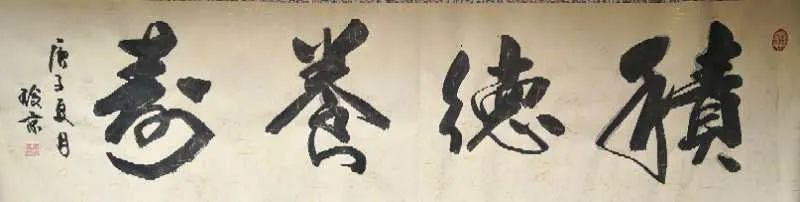 積德養壽
庚子夏月
骏京